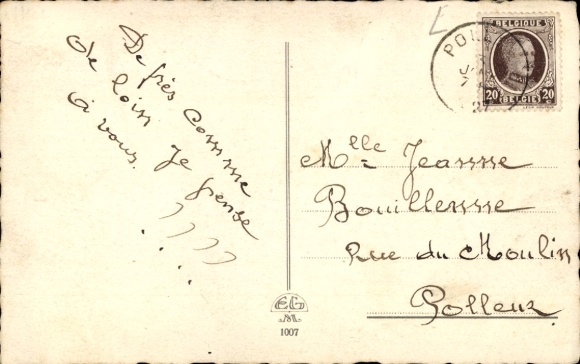 De près comme
de loin je pense
à vous.
? ? ? ?
. . . .
BELGIQUE
20 20
BELGIË
PO
Mlle Jeanne
Bouillenne
Rue du Moulin
Polleur
EG
M
1007